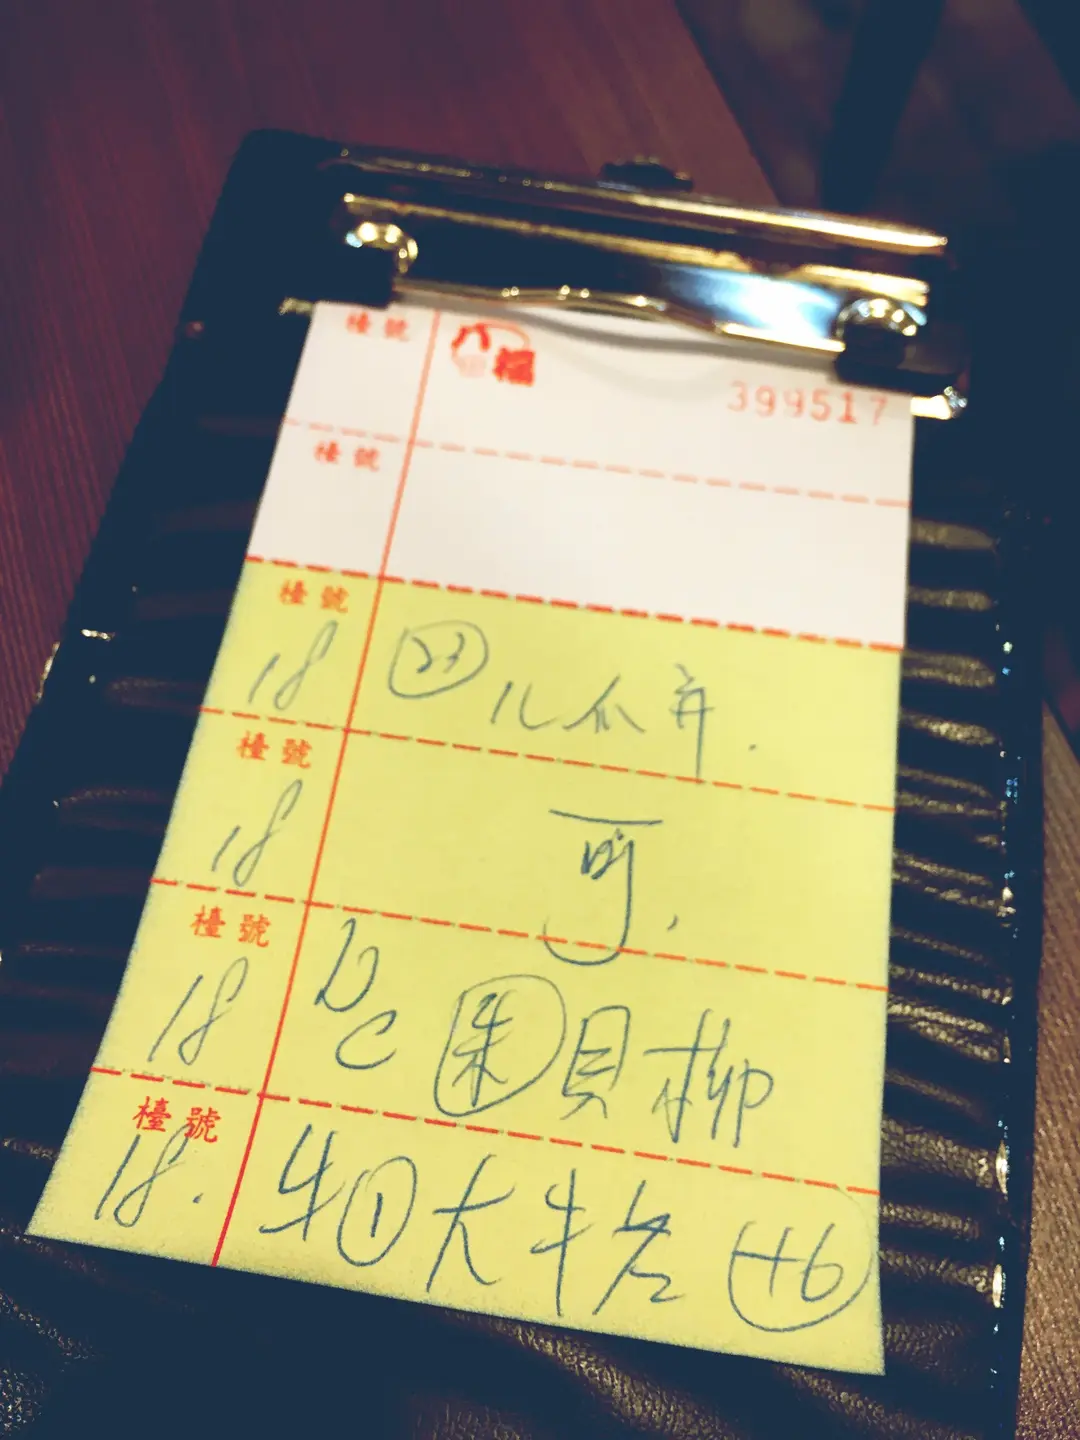 檯號 八福 399517
檯號
檯號
18 23 儿爪弃.
檯號
18 可.
檯號
18 bc 朱 貝柳
檯號
18. 牛 1 大牛 +6